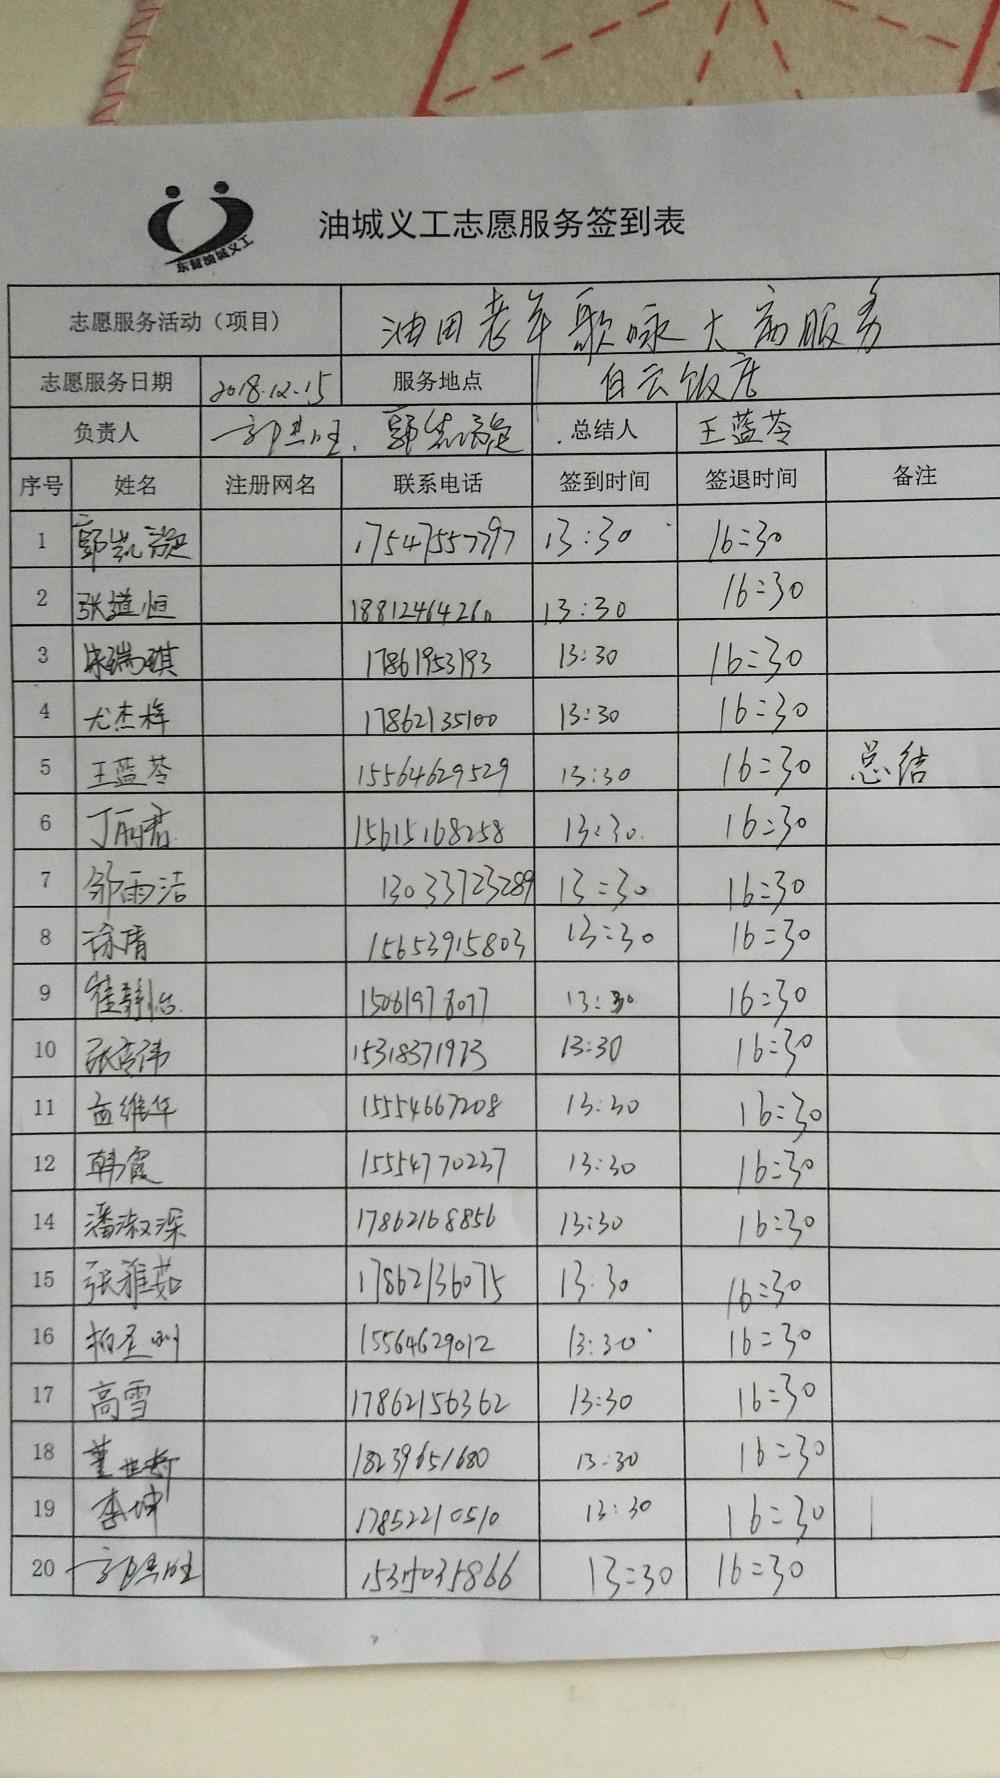 东营油城义工
油城义工志愿服务签到表
志愿服务活动（项目） 油田老年歌咏大赛服务
志愿服务日期 2018.12.15 服务地点 白云饭店
负责人 总结人 王蓝苓
序号 姓名 注册网名 联系电话 签到时间 签退时间 备注
1 17547557797 13:30 16:30
2 张道恒 18812464260 13:30 16:30
3 宋瑞琪 17861953193 13:30 16:30
4 尤杰梓 17862135100 13:30 16:30
5 王蓝苓 15564629529 13:30 16:30 总结
6 丁丽君 15615168258 13:30 16:30
7 邹雨洁 13033723289 13:30 16:30
8 徐倩 15653915803 13:30 16:30
9 崔静怡 15061978077 13:30 16:30
10 张李伟 15318371973 13:30 16:30
11 孟维华 15554667208 13:30 16:30
12 韩霞 15554770237 13:30 16:30
14 潘淑深 17862168856 13:30 16:30
15 张雅茹 17862136075 13:30 16:30
16 15564629012 13:30 16:30
17 高雪 17862156362 13:30 16:30
18 董世哲 18239651680 13:30 16:30
19 李坤 17852210510 13:30 16:30
20 13:30 16:30